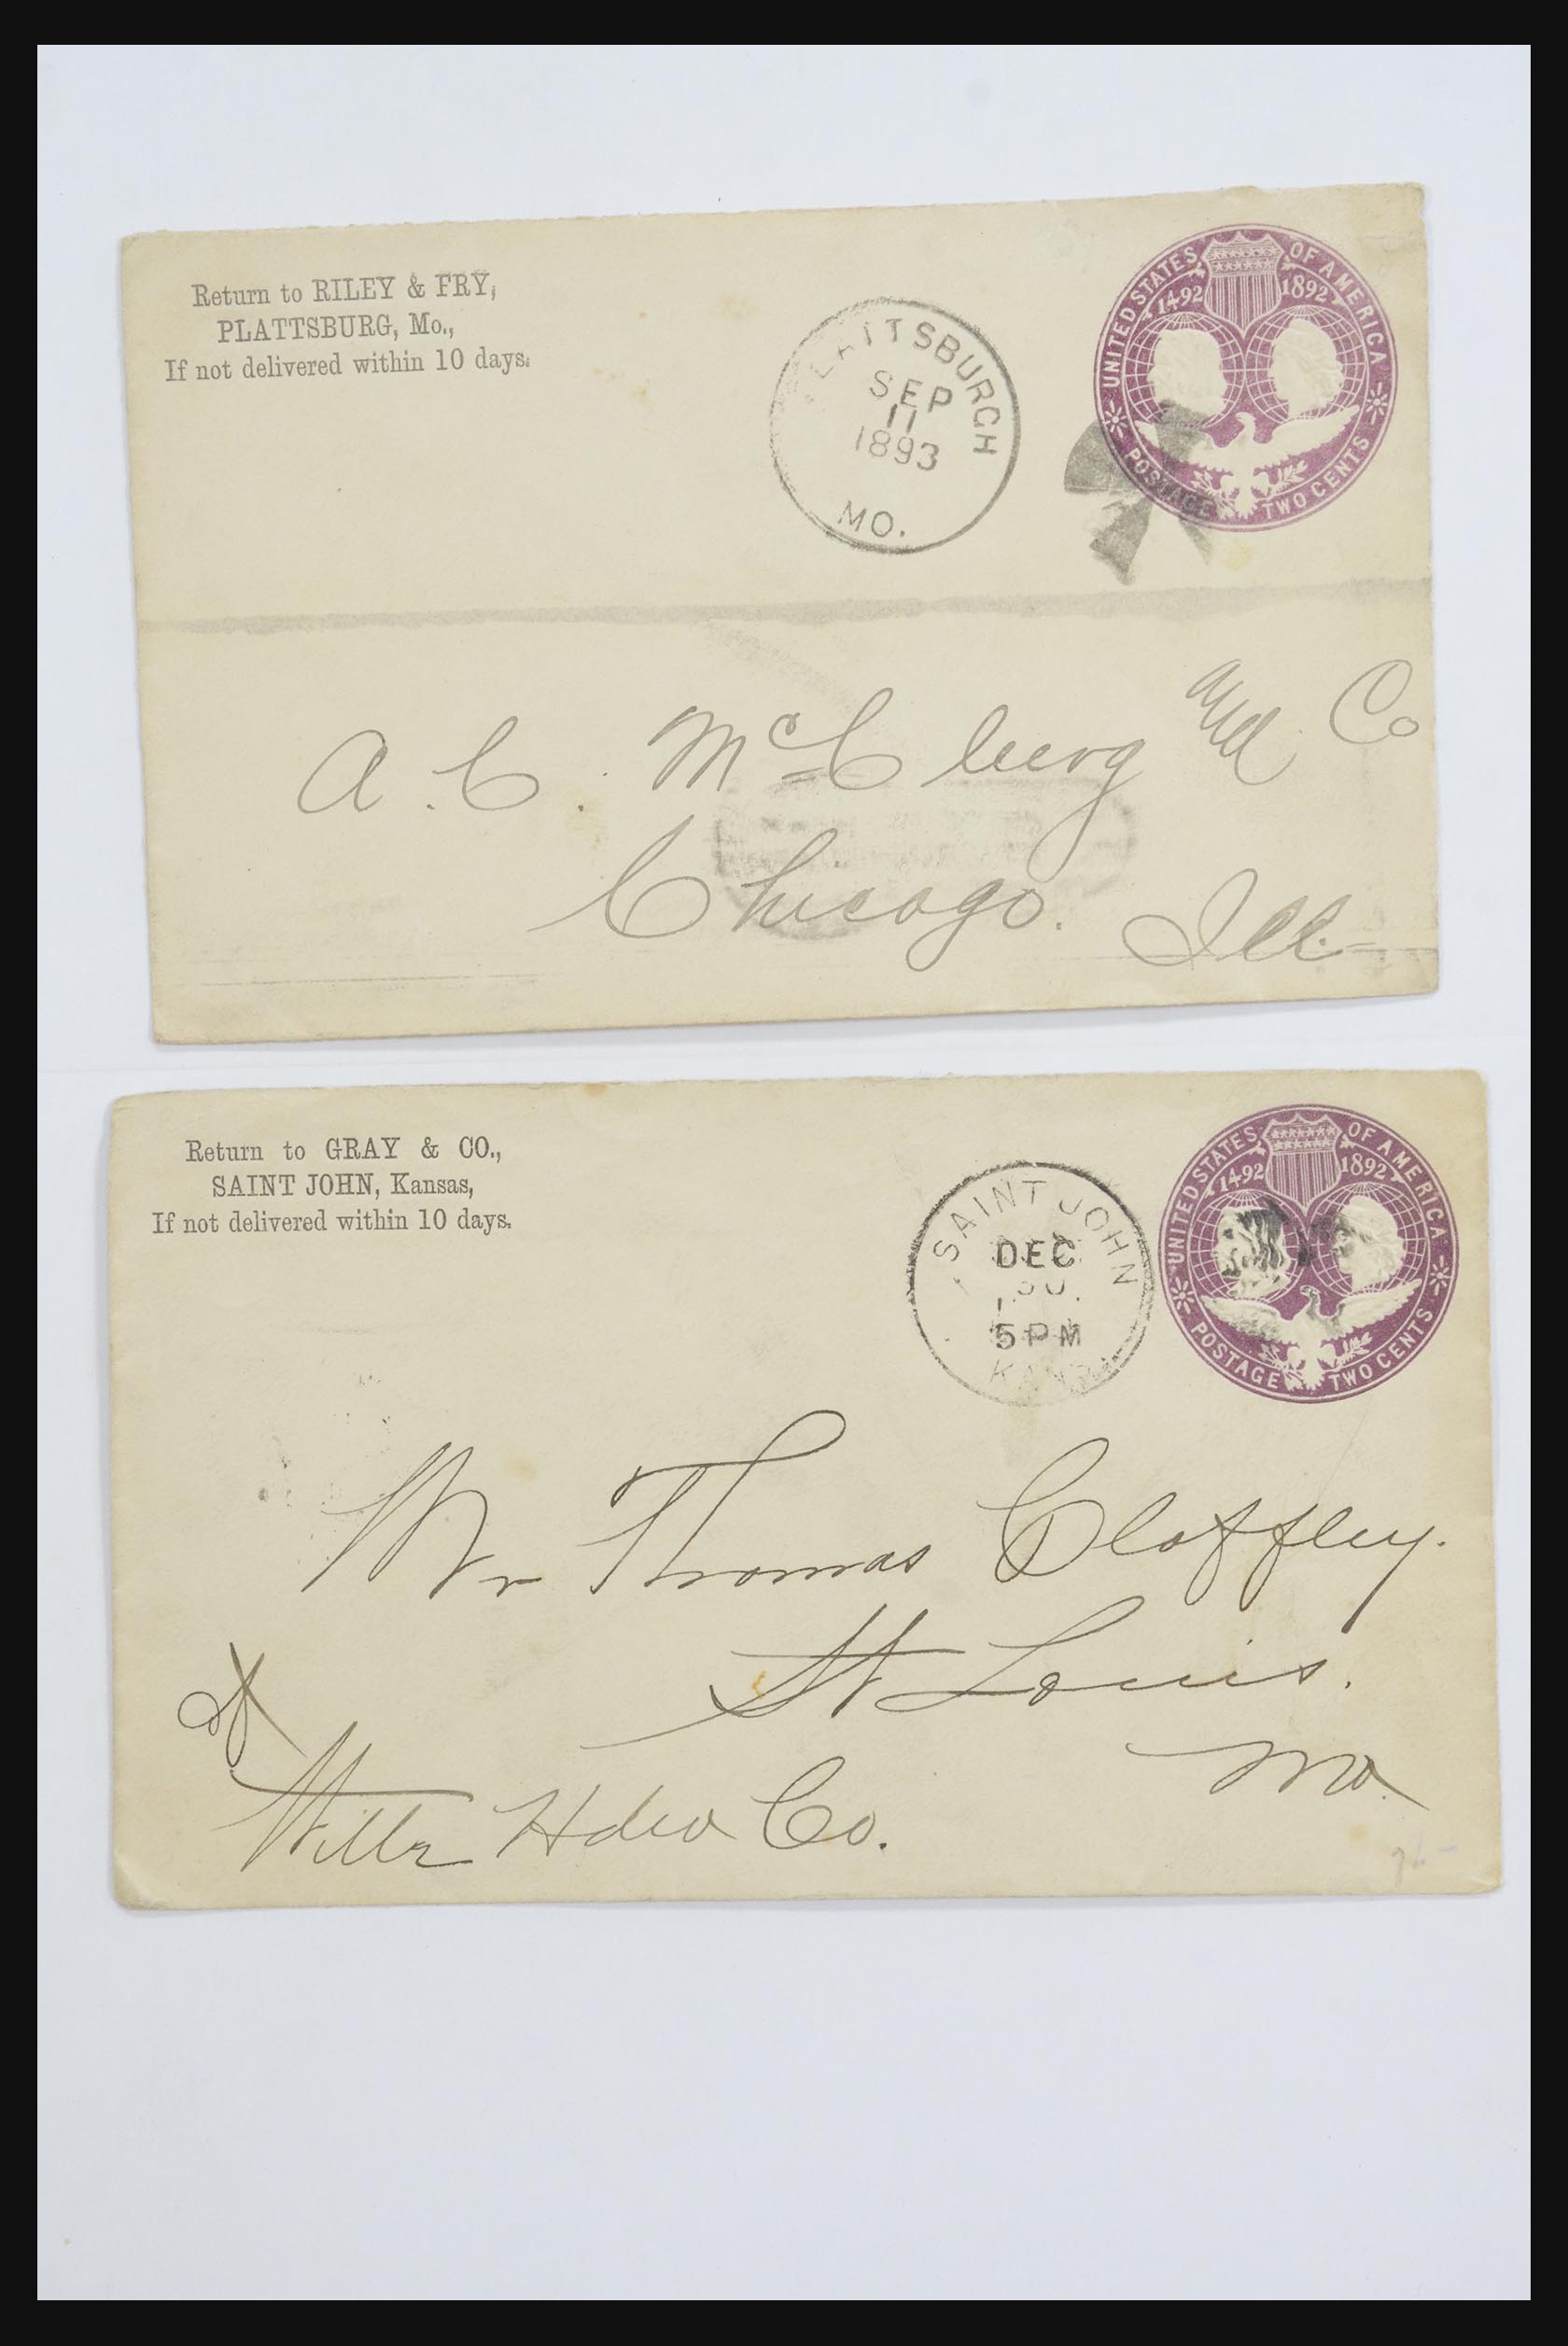 Return to RILEY & FRY,
PLATTSBURG, Mo.,
If not delivered within 10 days.
PLATTSBURGH
SEP
11
1893
MO.
UNITED STATES OF AMERICA
1492 1892
POSTAGE TWO CENTS
A. C. McClurg and Co
Chicago. Ill.
Return to GRAY & CO.,
SAINT JOHN, Kansas,
If not delivered within 10 days.
SAINT JOHN
DEC
30
5 PM
UNITED STATES OF AMERICA
1492 1892
POSTAGE TWO CENTS
Mr Thomas Claffley.
St Louis.
Mo.
Hdw Co.